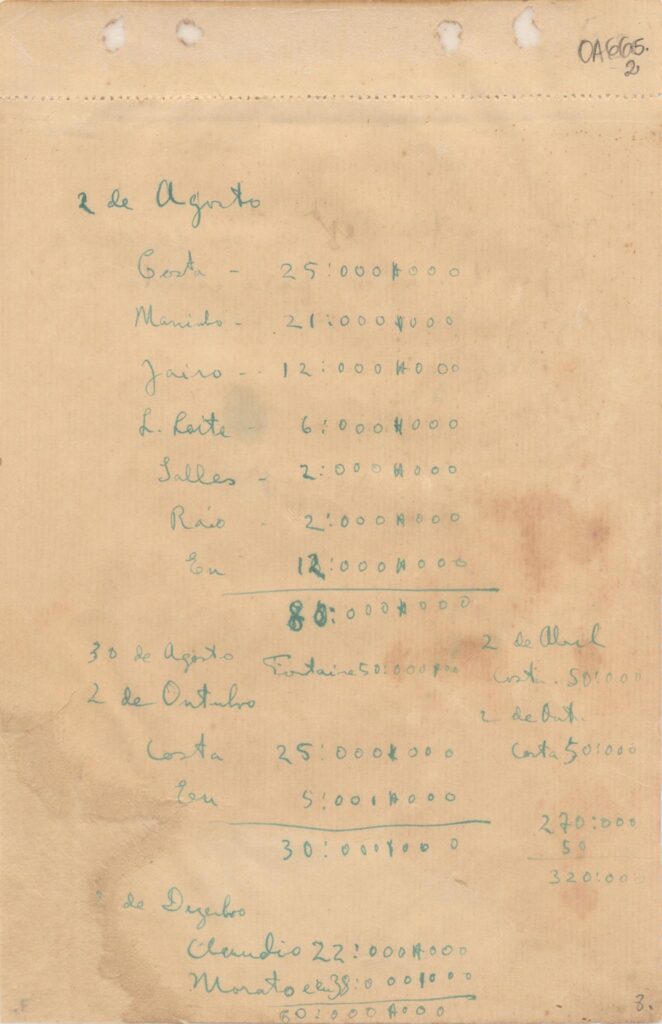 OA665.
2
2 de Agosto
Costa - 25:000$000
- 21:000$000
Jairo - 12:000$000
L. Leite - 6:000$000
Salles - 2:000$000
2:000$000
Eu 12:000$000
80:000$000
30 de Agosto Fontaine 50:000$000
2 de Abril
Costa . 50:000
2 de Outubro
2 de Out.
Costa 25:000$000
Costa 50:000
Eu 5:000$000
30:000$000
270:000
50
320:000
de Dezembro
Claudio 22:000$000
Morato e eu 38:000$000
60:000$000
3.